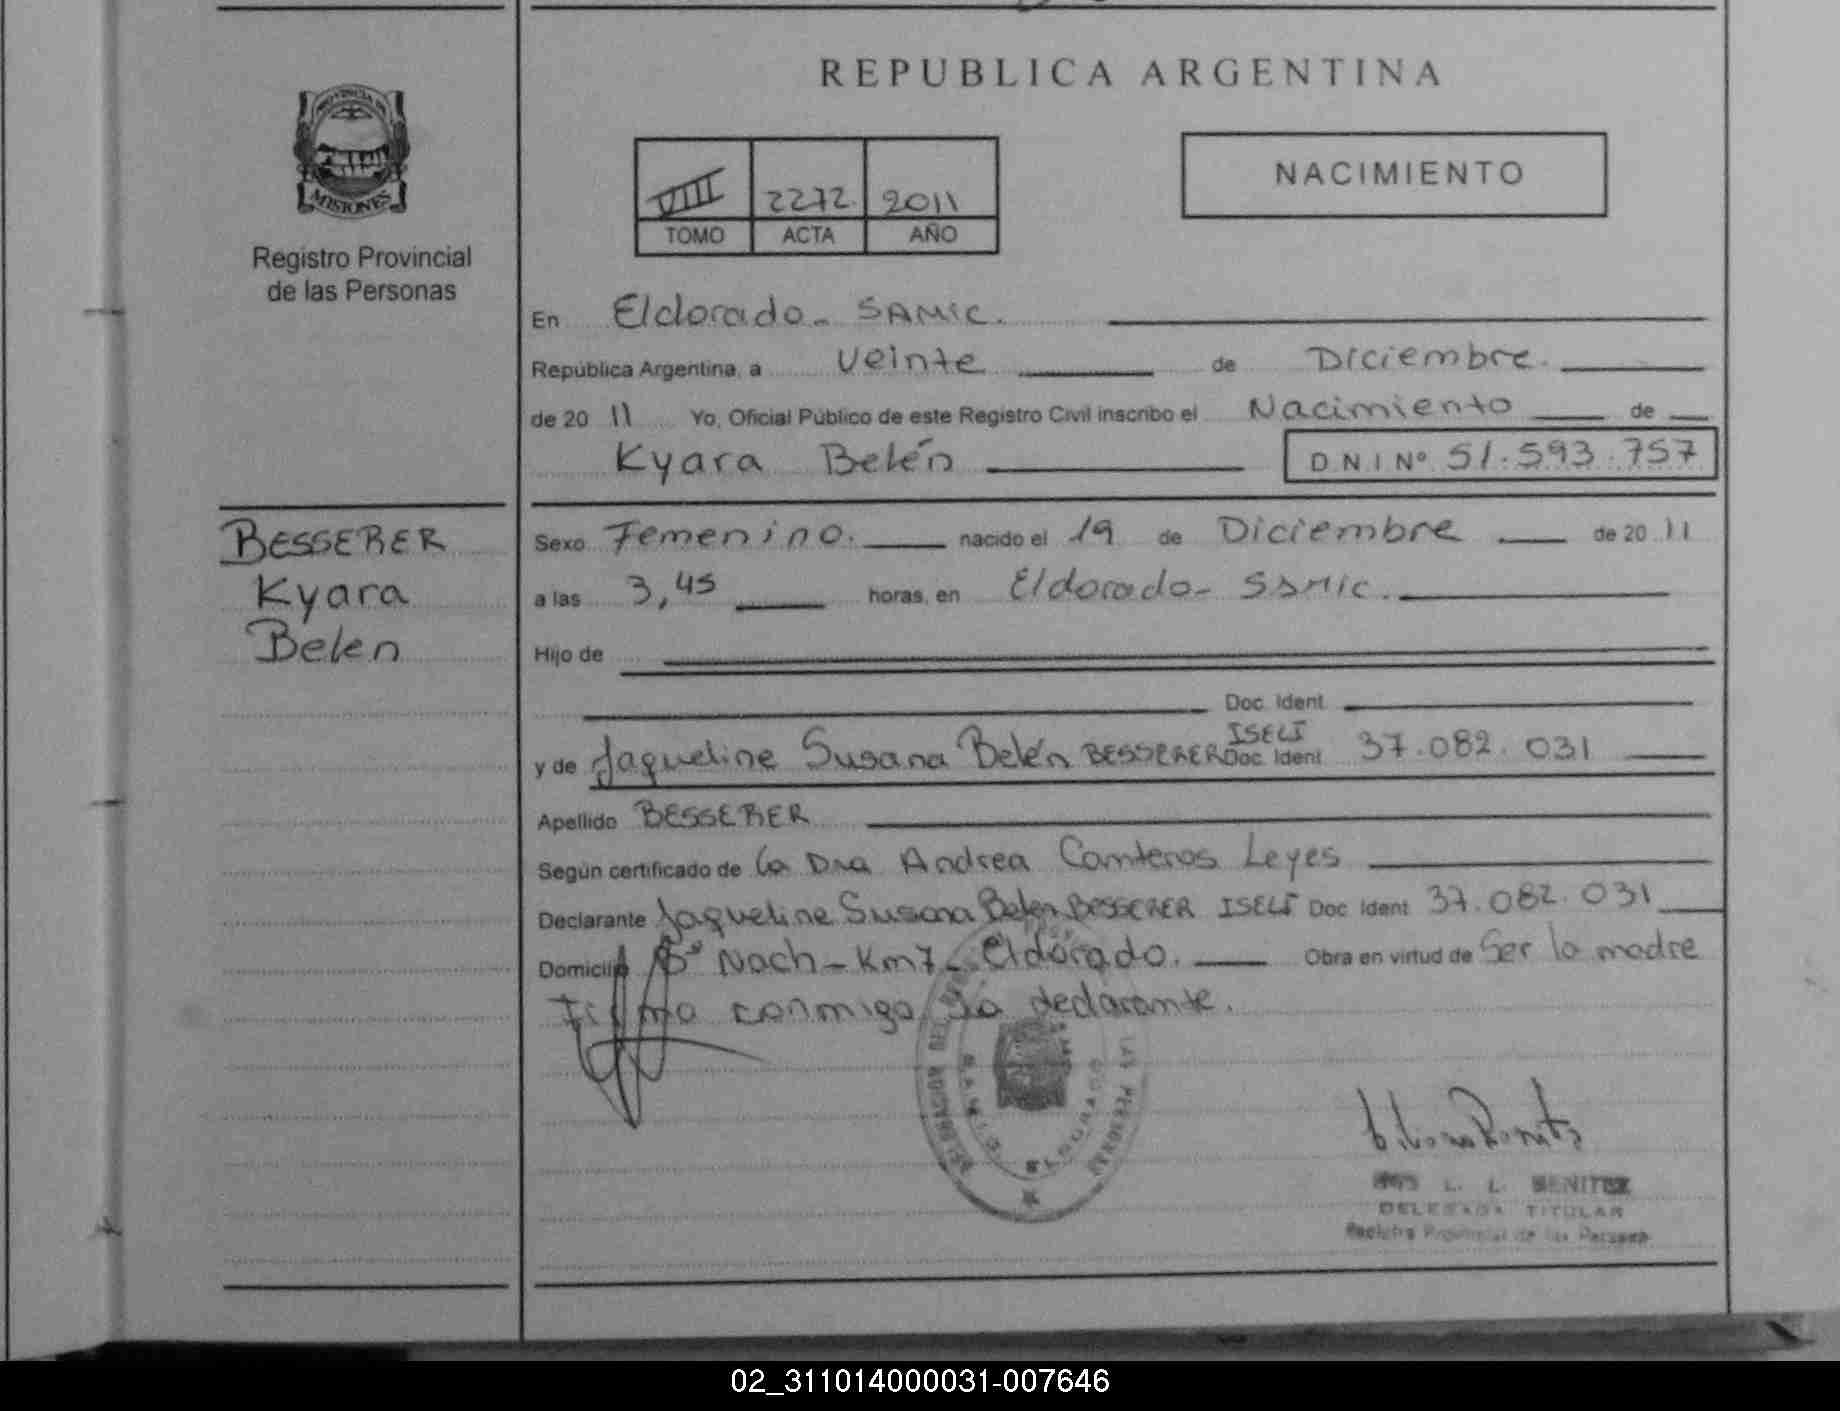 REPUBLICA ARGENTINA
PROVINCIA DE
MISIONES
Registro Provincial
de las Personas
VIII 2272 2011
TOMO ACTA AÑO
NACIMIENTO
En Eldorado - SAMIC.
República Argentina, a Veinte de Diciembre.
de 20 11 Yo, Oficial Público de este Registro Civil inscribo el Nacimiento de
Kyara Belén DNI Nº 51.593.757
BESSERER
Kyara
Belen
Sexo Femenino. nacido el 19 de Diciembre de 20 11
a las 3,45 horas, en Eldorado - SAMIC.
Hijo de
Doc. Ident.
y de Jaqueline Susana Belén BESSERER ISELI Doc. Ident. 37.082.031
Apellido BESSERER
Según certificado de la Dra Andrea Leyes
Declarante Jaqueline Susana Belen BESSERER ISELI Doc. Ident. 37.082.031
Domicilio Bº Noch - Km 7 - Eldorado. Obra en virtud de Ser la madre
Firma conmigo la declarante.
DELEGACION DEL LAS PERSONAS
SAMIC
ELDORADO
L. L. BENITEZ
DELEGADA TITULAR
Registro Provincial de las Personas
02_311014000031-007646